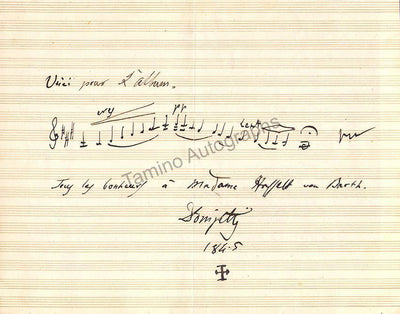 Voici pour L'album.
pp
Tous les bonheurs à Madame Hasselt van Barth.
Donizetti
1845
Tamino Autographs